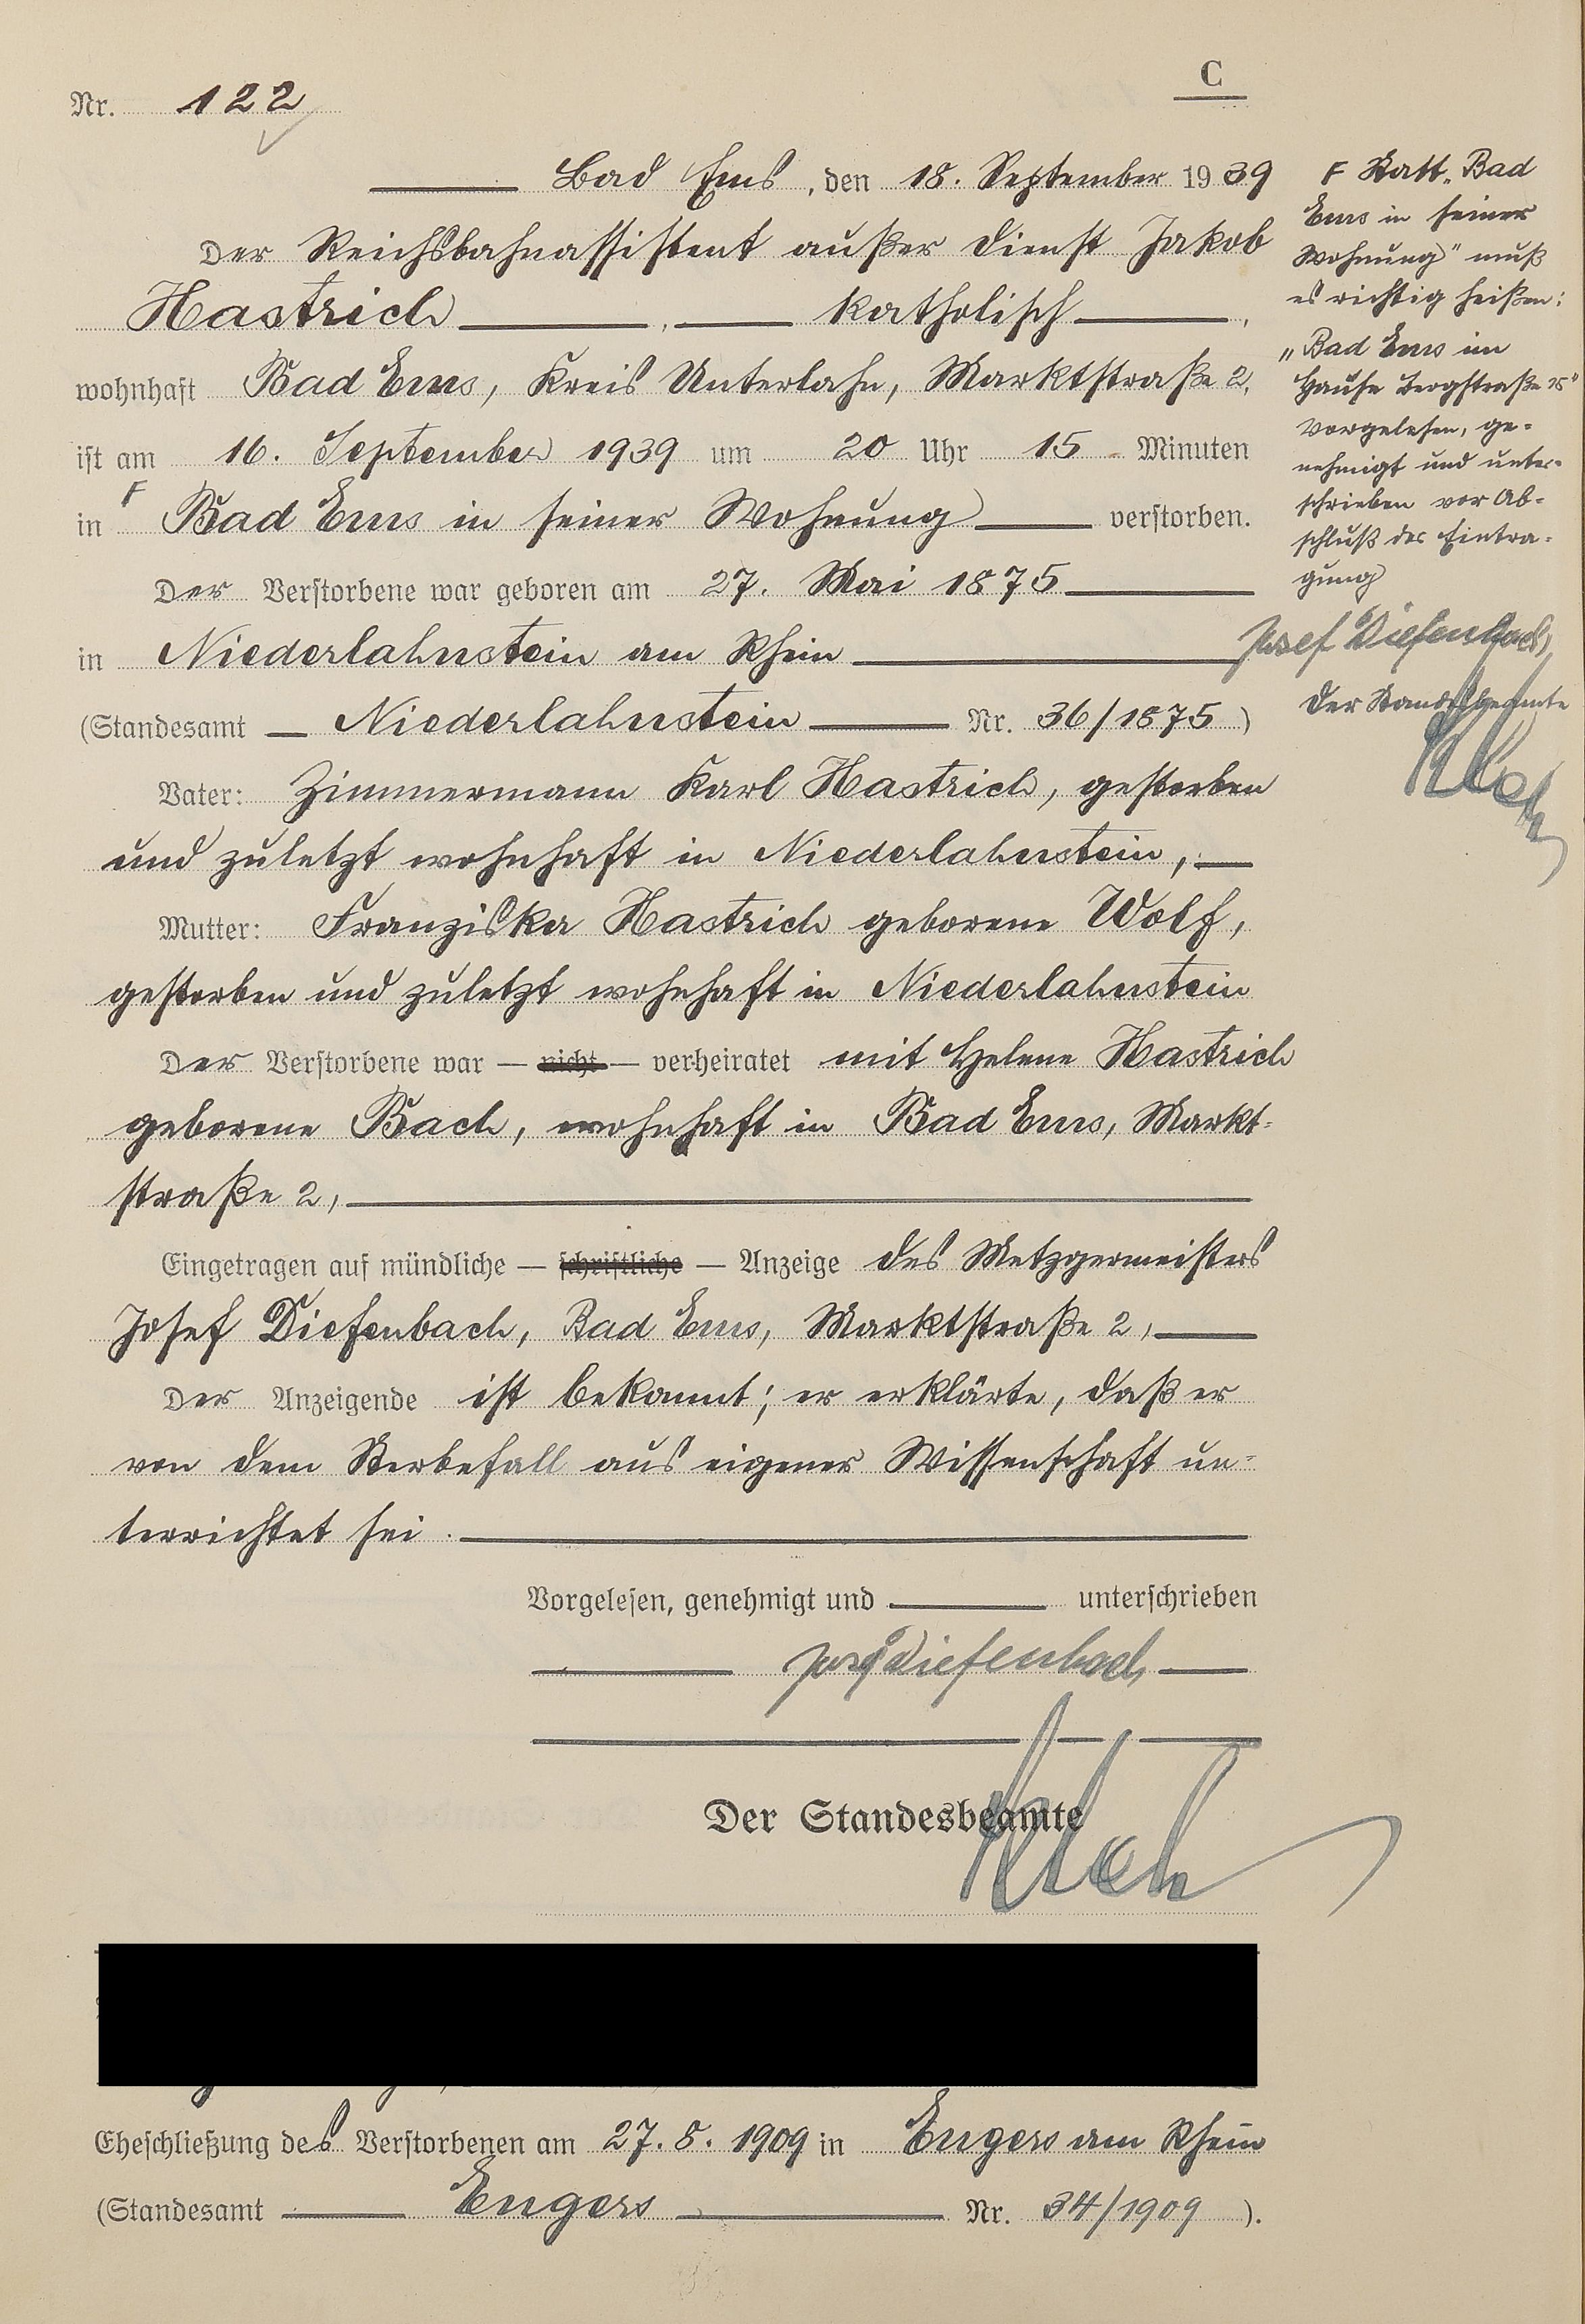 C
Nr. 122
Bad Ems, den 18. September 1939
Der Reichsbahnassistent außer Dienst Jakob
Hastrich, katholisch,
wohnhaft Bad Ems, Kreis Unterlahn, Marktstraße 2,
ist am 16. September 1939 um 20 Uhr 15 Minuten
in F Bad Ems in seiner Wohnung verstorben.
Der Verstorbene war geboren am 27. Mai 1875
in Niederlahnstein am Rhein
(Standesamt Niederlahnstein Nr. 36/1875)
Vater: Zimmermann Karl Hastrich, gestorben
und zuletzt wohnhaft in Niederlahnstein,
Mutter: Franziska Hastrich geborene Wolf,
gestorben und zuletzt wohnhaft in Niederlahnstein
Der Verstorbene war — nicht — verheiratet mit Helene Hastrich
geborene Bach, wohnhaft in Bad Ems, Markt-
straße 2,
Eingetragen auf mündliche — schriftliche — Anzeige des Metzgermeisters
Josef Diefenbach, Bad Ems, Marktstraße 2,
Der Anzeigende ist bekannt; er erklärte, daß er
von dem Sterbefall aus eigener Wissenschaft un-
terrichtet sei.
Vorgelesen, genehmigt und unterschrieben
Josef Diefenbach
Der Standesbeamte
Eheschließung des Verstorbenen am 27.5.1909 in Engers am Rhein
(Standesamt Engers Nr. 34/1909).
F Statt „Bad
Ems in seiner
Wohnung" muß
es richtig heißen:
„Bad Ems im
Hause Bergstraße
Vorgelesen, ge-
nehmigt und unter-
schrieben vor Ab-
schluß der Eintra-
gung
Josef Diefenbach
Der Standesbeamte